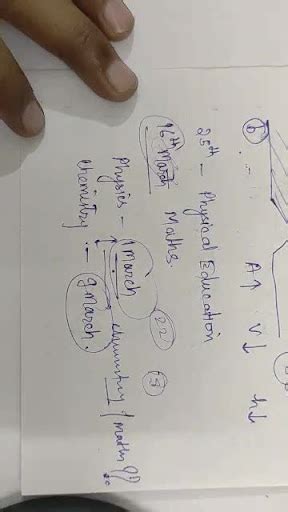 b
A↑ V↓ h↓
25th - Physical Education
16th March Maths.
Physics - 1 March
22
Chemistry :- 9 March.
Chemistry / maths